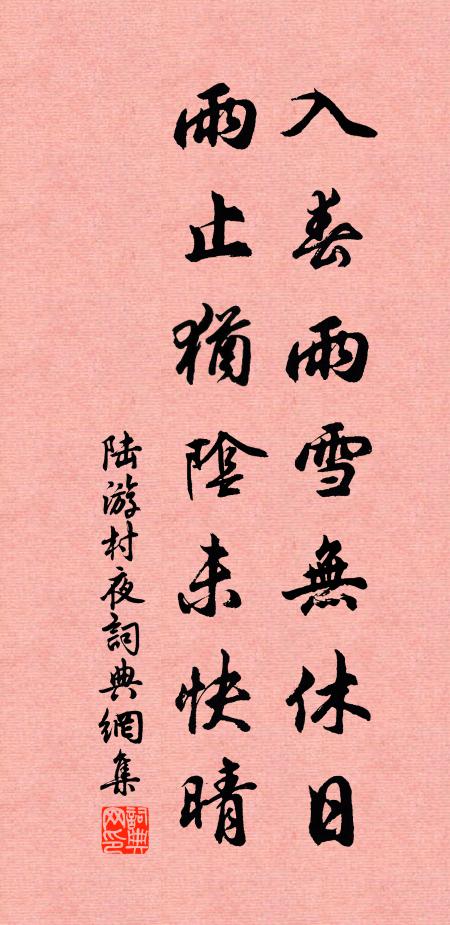 入春雨雪無休日
雨止猶陰未快晴
陆游村夜詞典網集
詞典网印